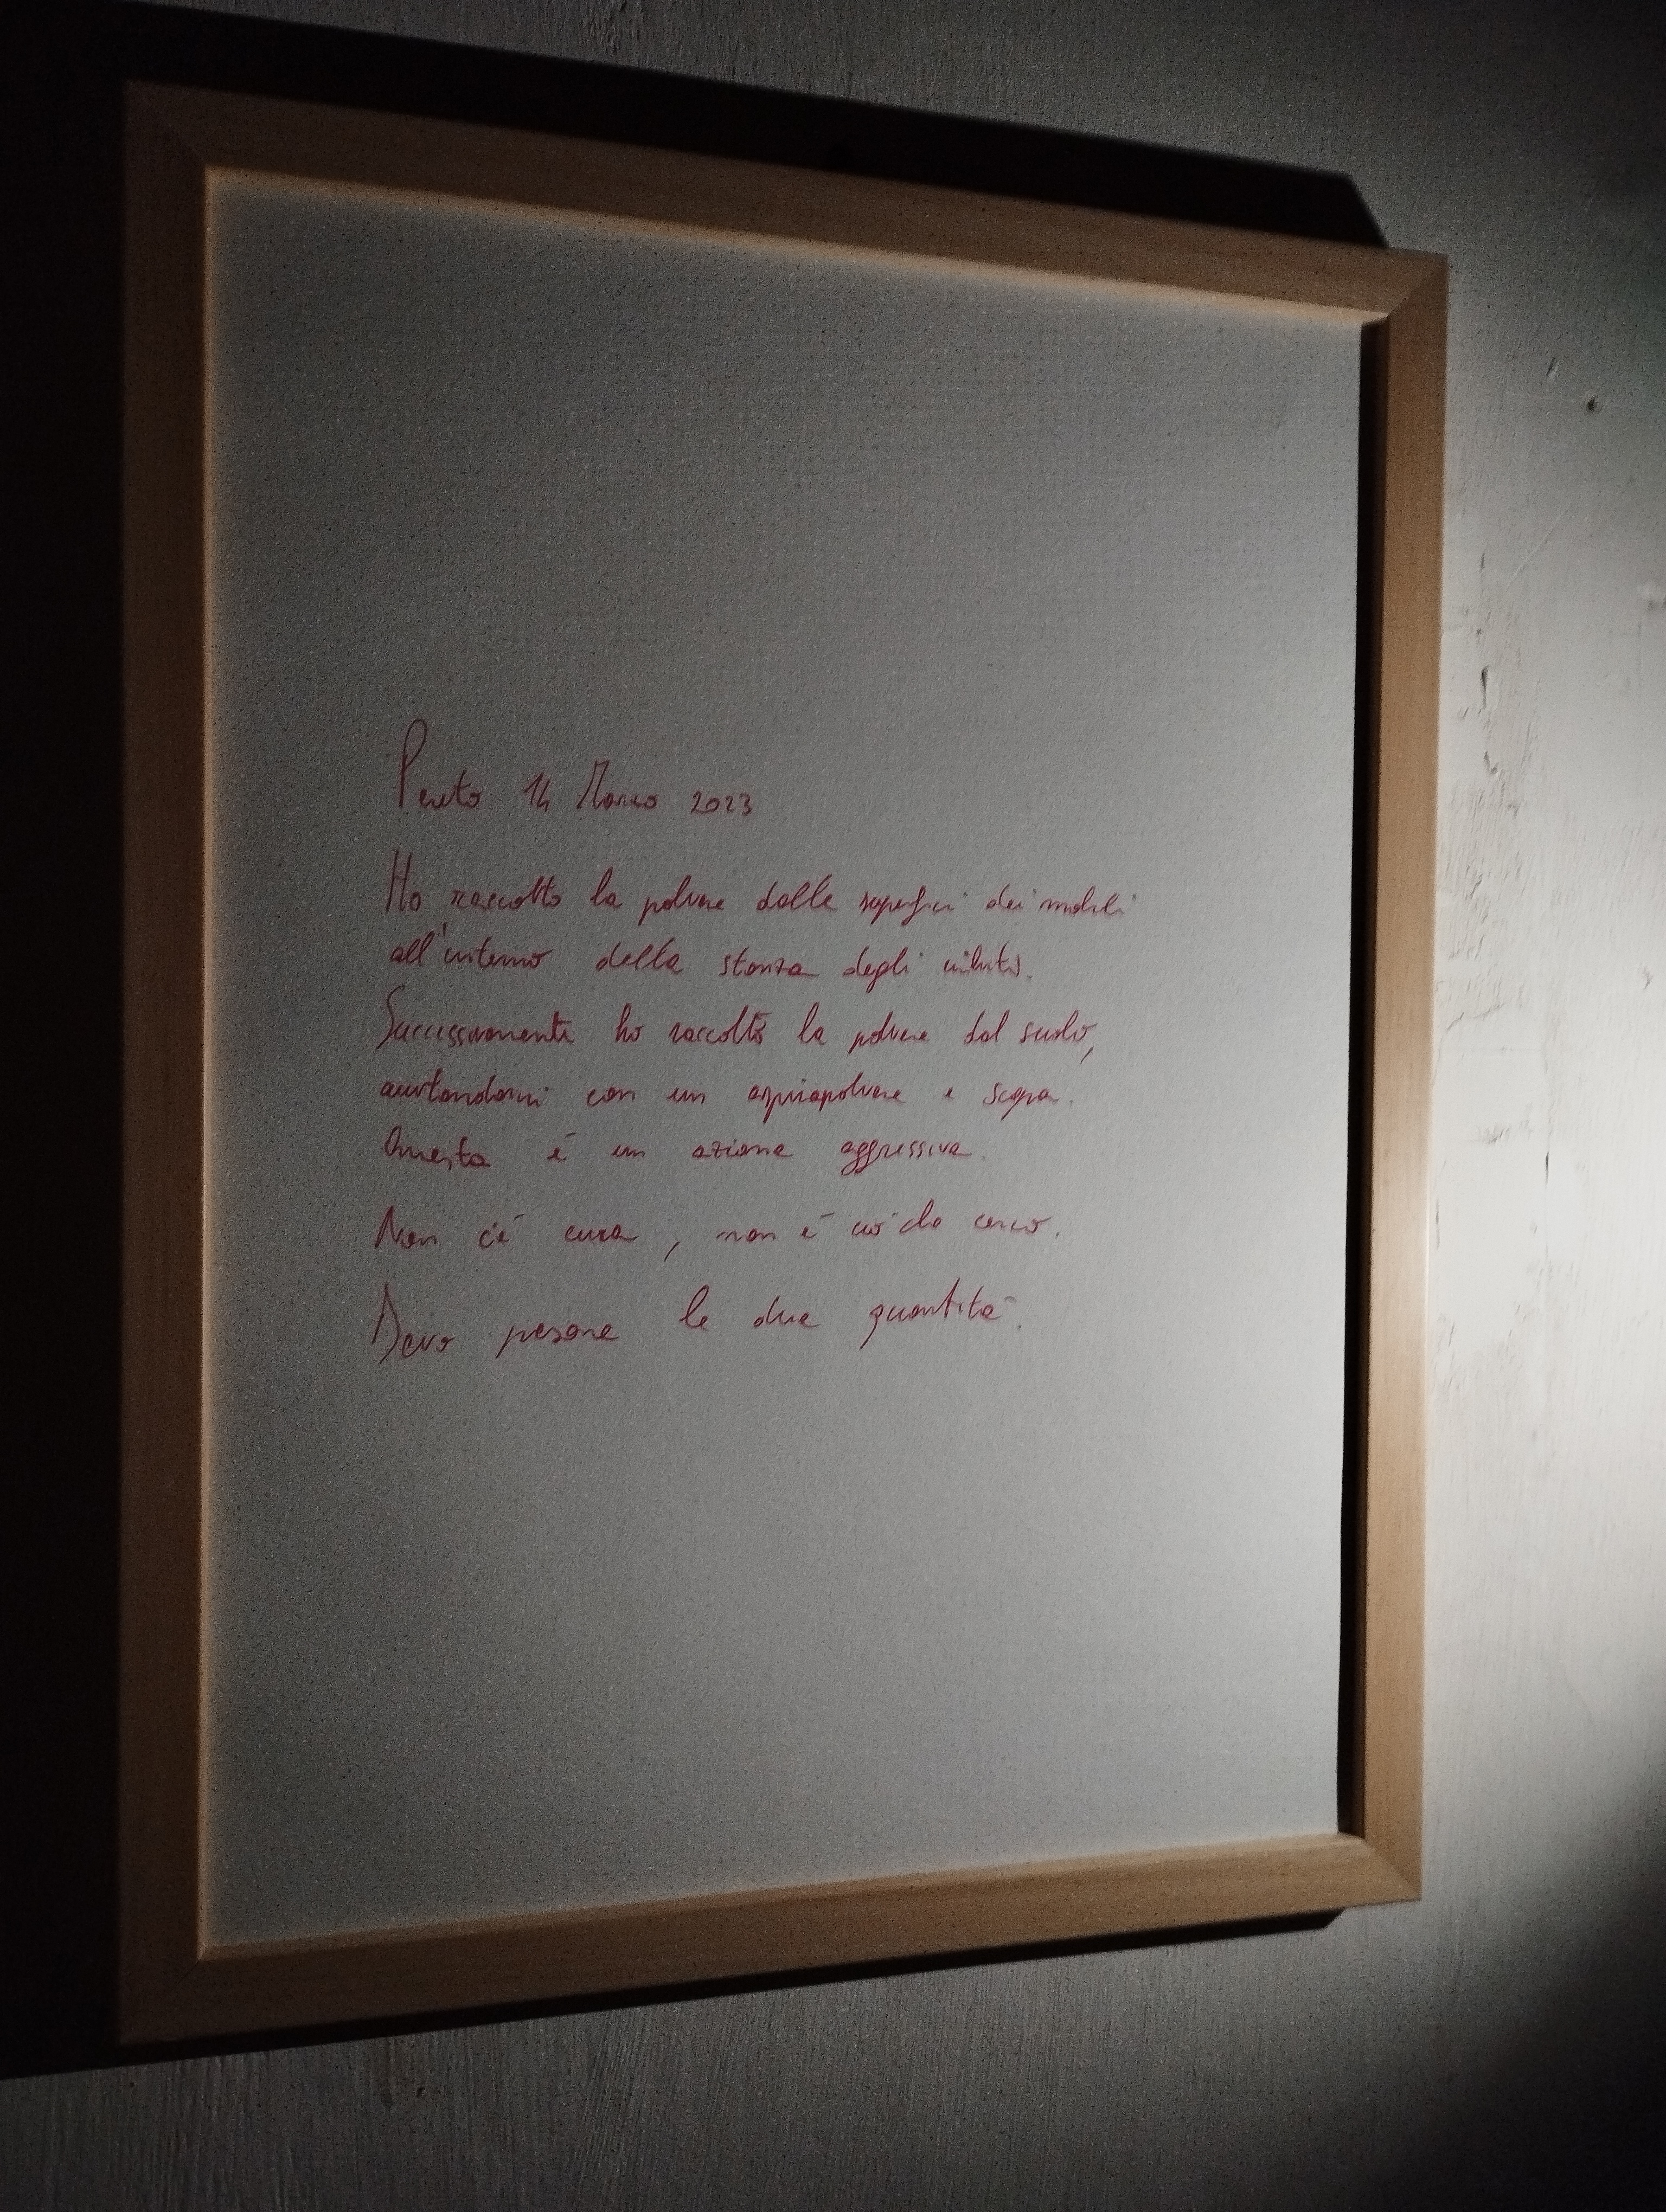 Pereto 14 Marzo 2023
Ho raccolto la polvere dalle superfici dei mobili
all'interno della stanza degli
Successivamente ho raccolto la polvere dal suolo,
aiutandomi con un aspirapolvere e scopa.
Questa é un azione aggressiva.
Non c'é cura, non é ció che cerco.
Devo pesare le due quantitá.